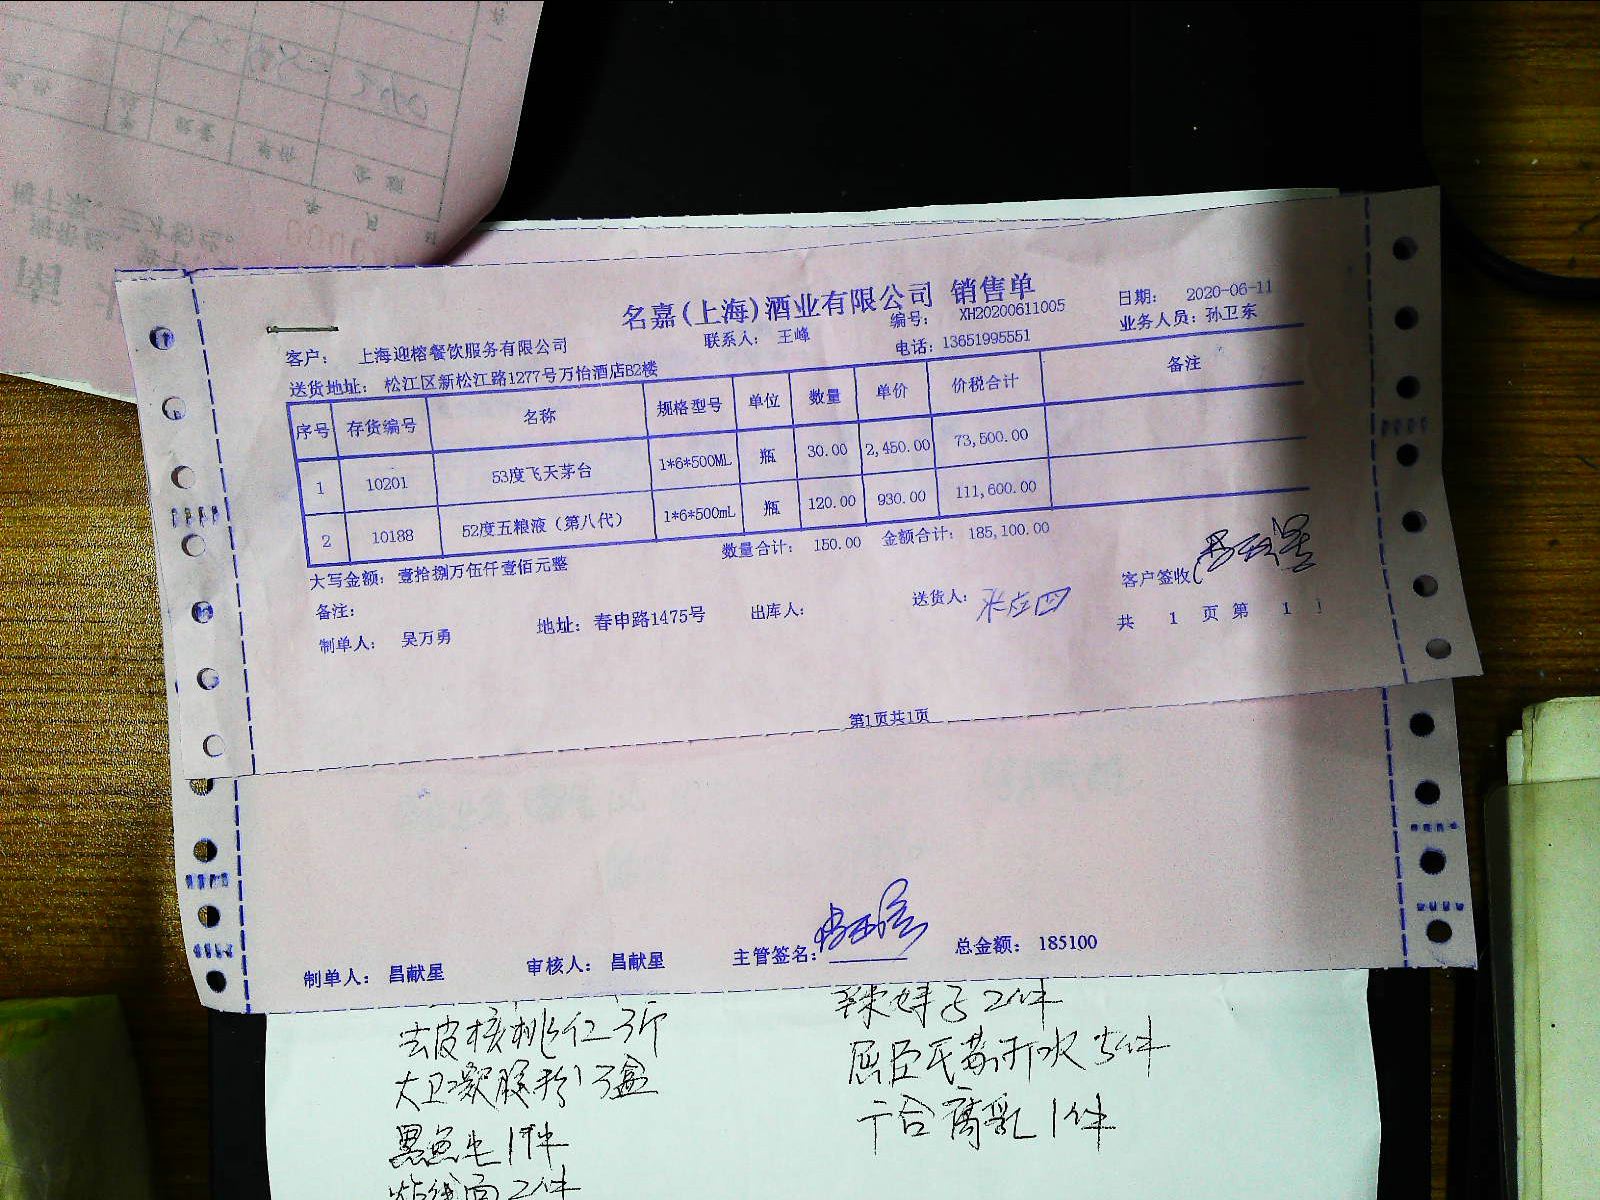 名嘉(上海)酒业有限公司 销售单
客户： 上海迎榕餐饮服务有限公司 联系人： 王峰 编号： XH20200611005 日期： 2020-06-11
送货地址： 松江区新松江路1277号万怡酒店B2楼 电话：13651995551 业务人员：孙卫东
序号 存货编号 名称 规格型号 单位 数量 单价 价税合计 备注
1 10201 53度飞天茅台 1*6*500ML 瓶 30.00 2,450.00 73,500.00
2 10188 52度五粮液（第八代） 1*6*500mL 瓶 120.00 930.00 111,600.00
大写金额：壹拾捌万伍仟壹佰元整 数量合计： 150.00 金额合计：185,100.00
备注： 客户签收
制单人： 吴万勇 地址：春申路1475号 出库人： 送货人： 共 1 页 第 1
第1页共1页
制单人： 昌献星 审核人： 昌献星 主管签名： 总金额： 185100
去皮核桃仁3斤 辣妹子2件
3盒 屈臣氏苏打水5件
1件 腐乳1件
2件